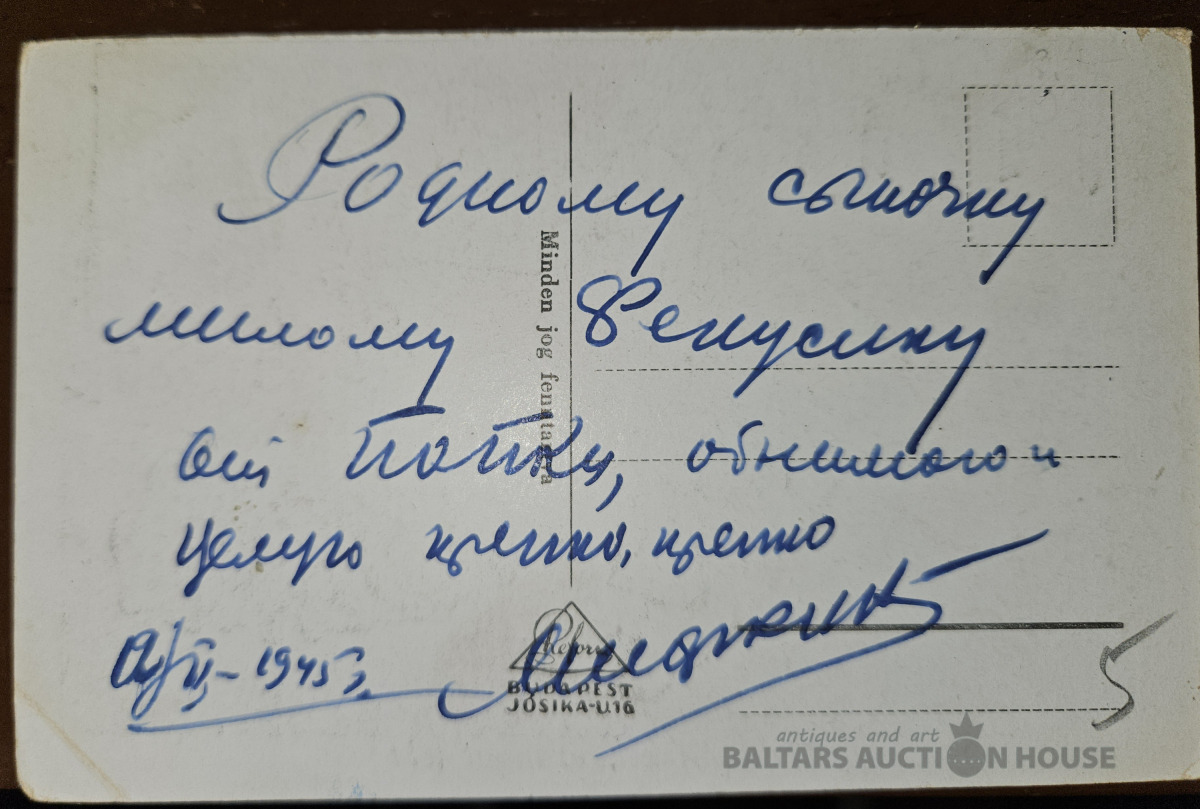 Родному сыночку
милому Фенусику
от Папки, обнимаю и
целую крепко, крепко
VI - 1945 г.
Minden jog fenntartva
BUDAPEST
JÓSIKA-U.16
5
antiques and art
BALTARS AUCTION HOUSE